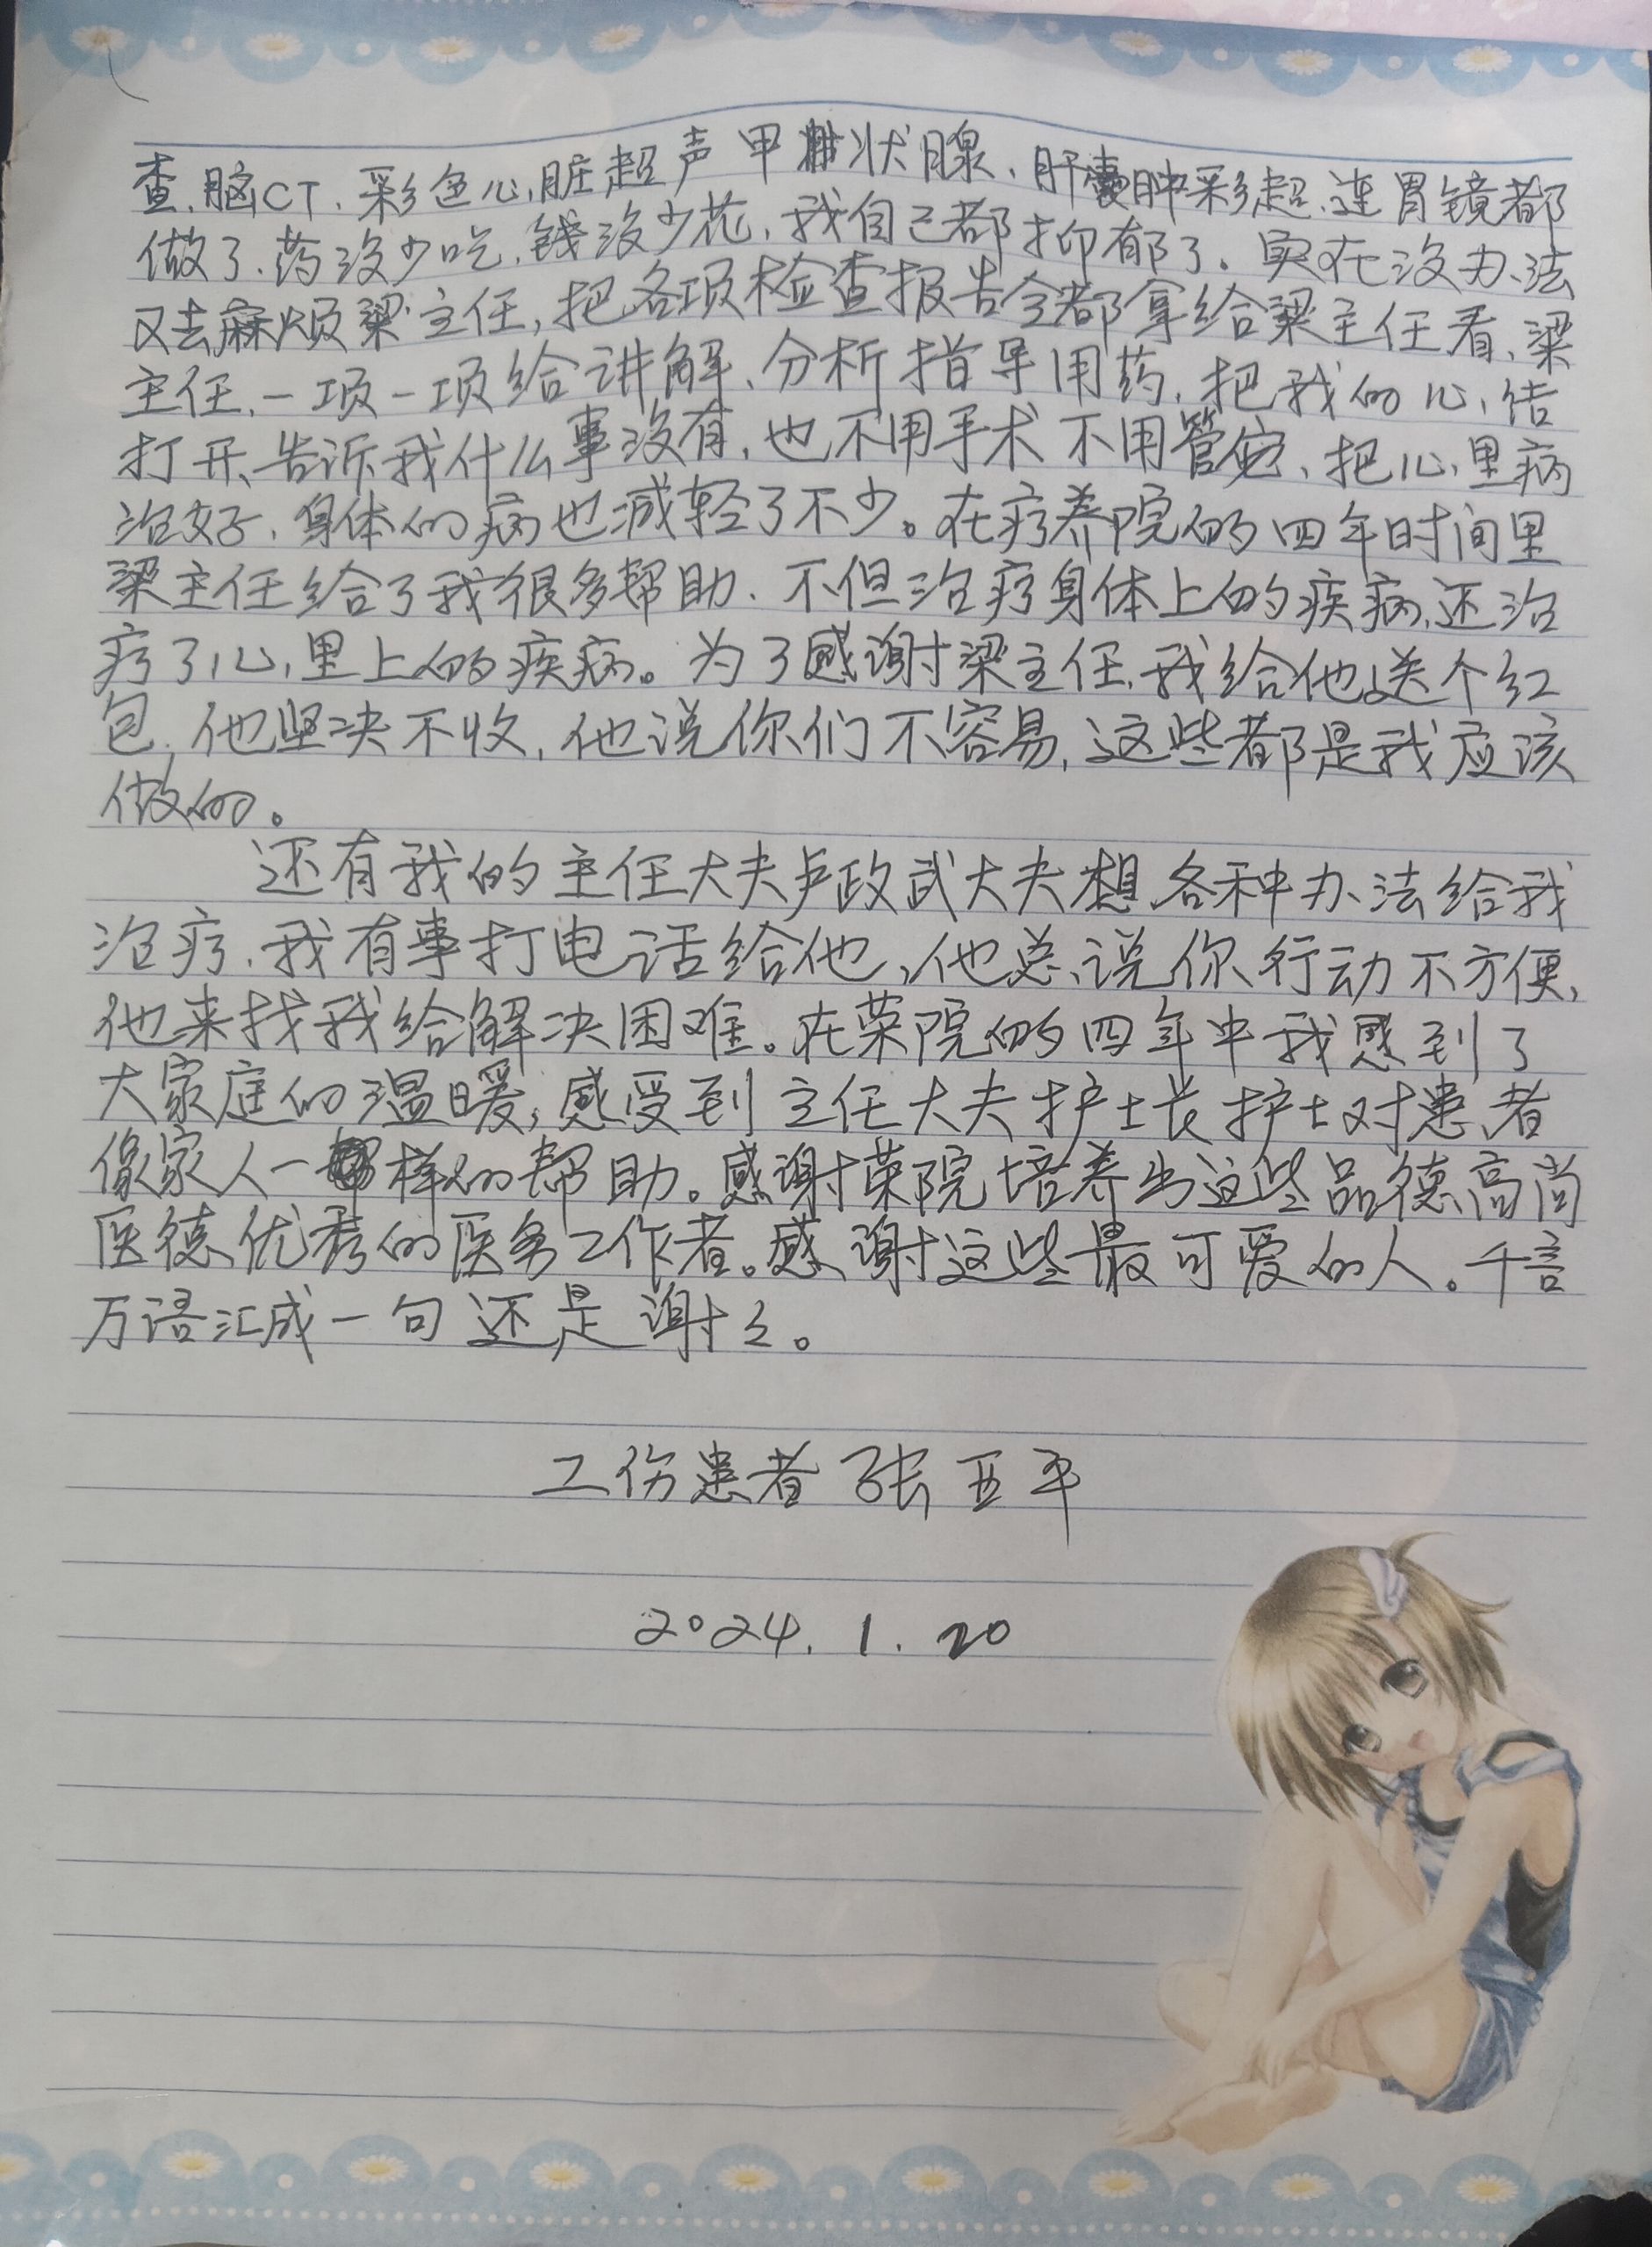 查、脑CT、彩色心脏超声甲状腺、肝囊肿彩超、连胃镜都
做了、药没少吃、钱没少花、我自己都抑郁了。实在没办法
又去麻烦梁主任,把各项检查报告全都拿给梁主任看、梁
主任、一项一项给讲解、分析指导用药,把我的心结
打开、告诉我什么事没有,也不用手术 不用管它、把心里病
治好、身体的病也减轻了不少。在疗养院的四年时间里
梁主任给了我很多帮助、不但治疗身体上的疾病、还治
疗了心里上的疾病。为了感谢梁主任、我给他送个红
包、他坚决不收,他说你们不容易,这些都是我应该
做的。
还有我的主任大夫卢政武大夫想各种办法给我
治疗、我有事打电话给他,他总说你行动不方便,
他来找我给解决困难。在荣院的四年中我感到了
大家庭的温暖,感受到主任大夫护士长护士对患者
像家人一样的帮助。感谢荣院培养出这些品德高尚
医德优秀的医务工作者。感谢这些最可爱的人。千言
万语汇成一句 还是谢々。
工伤患者 张亚平
2024.1.20